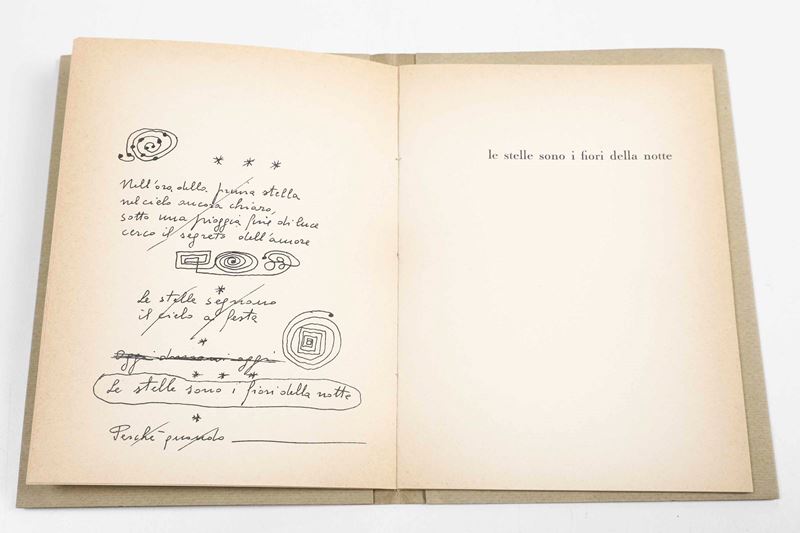 * * *
Nell'ora della prima stella
nel cielo ancora chiaro,
sotto una pioggia fine di luce
cerco il segreto dell'amore
*
Le stelle segnano
il cielo a festa
*
oggi domani oggi
* * *
Le stelle sono i fiori della notte
*
Perchè quando
le stelle sono i fiori della notte